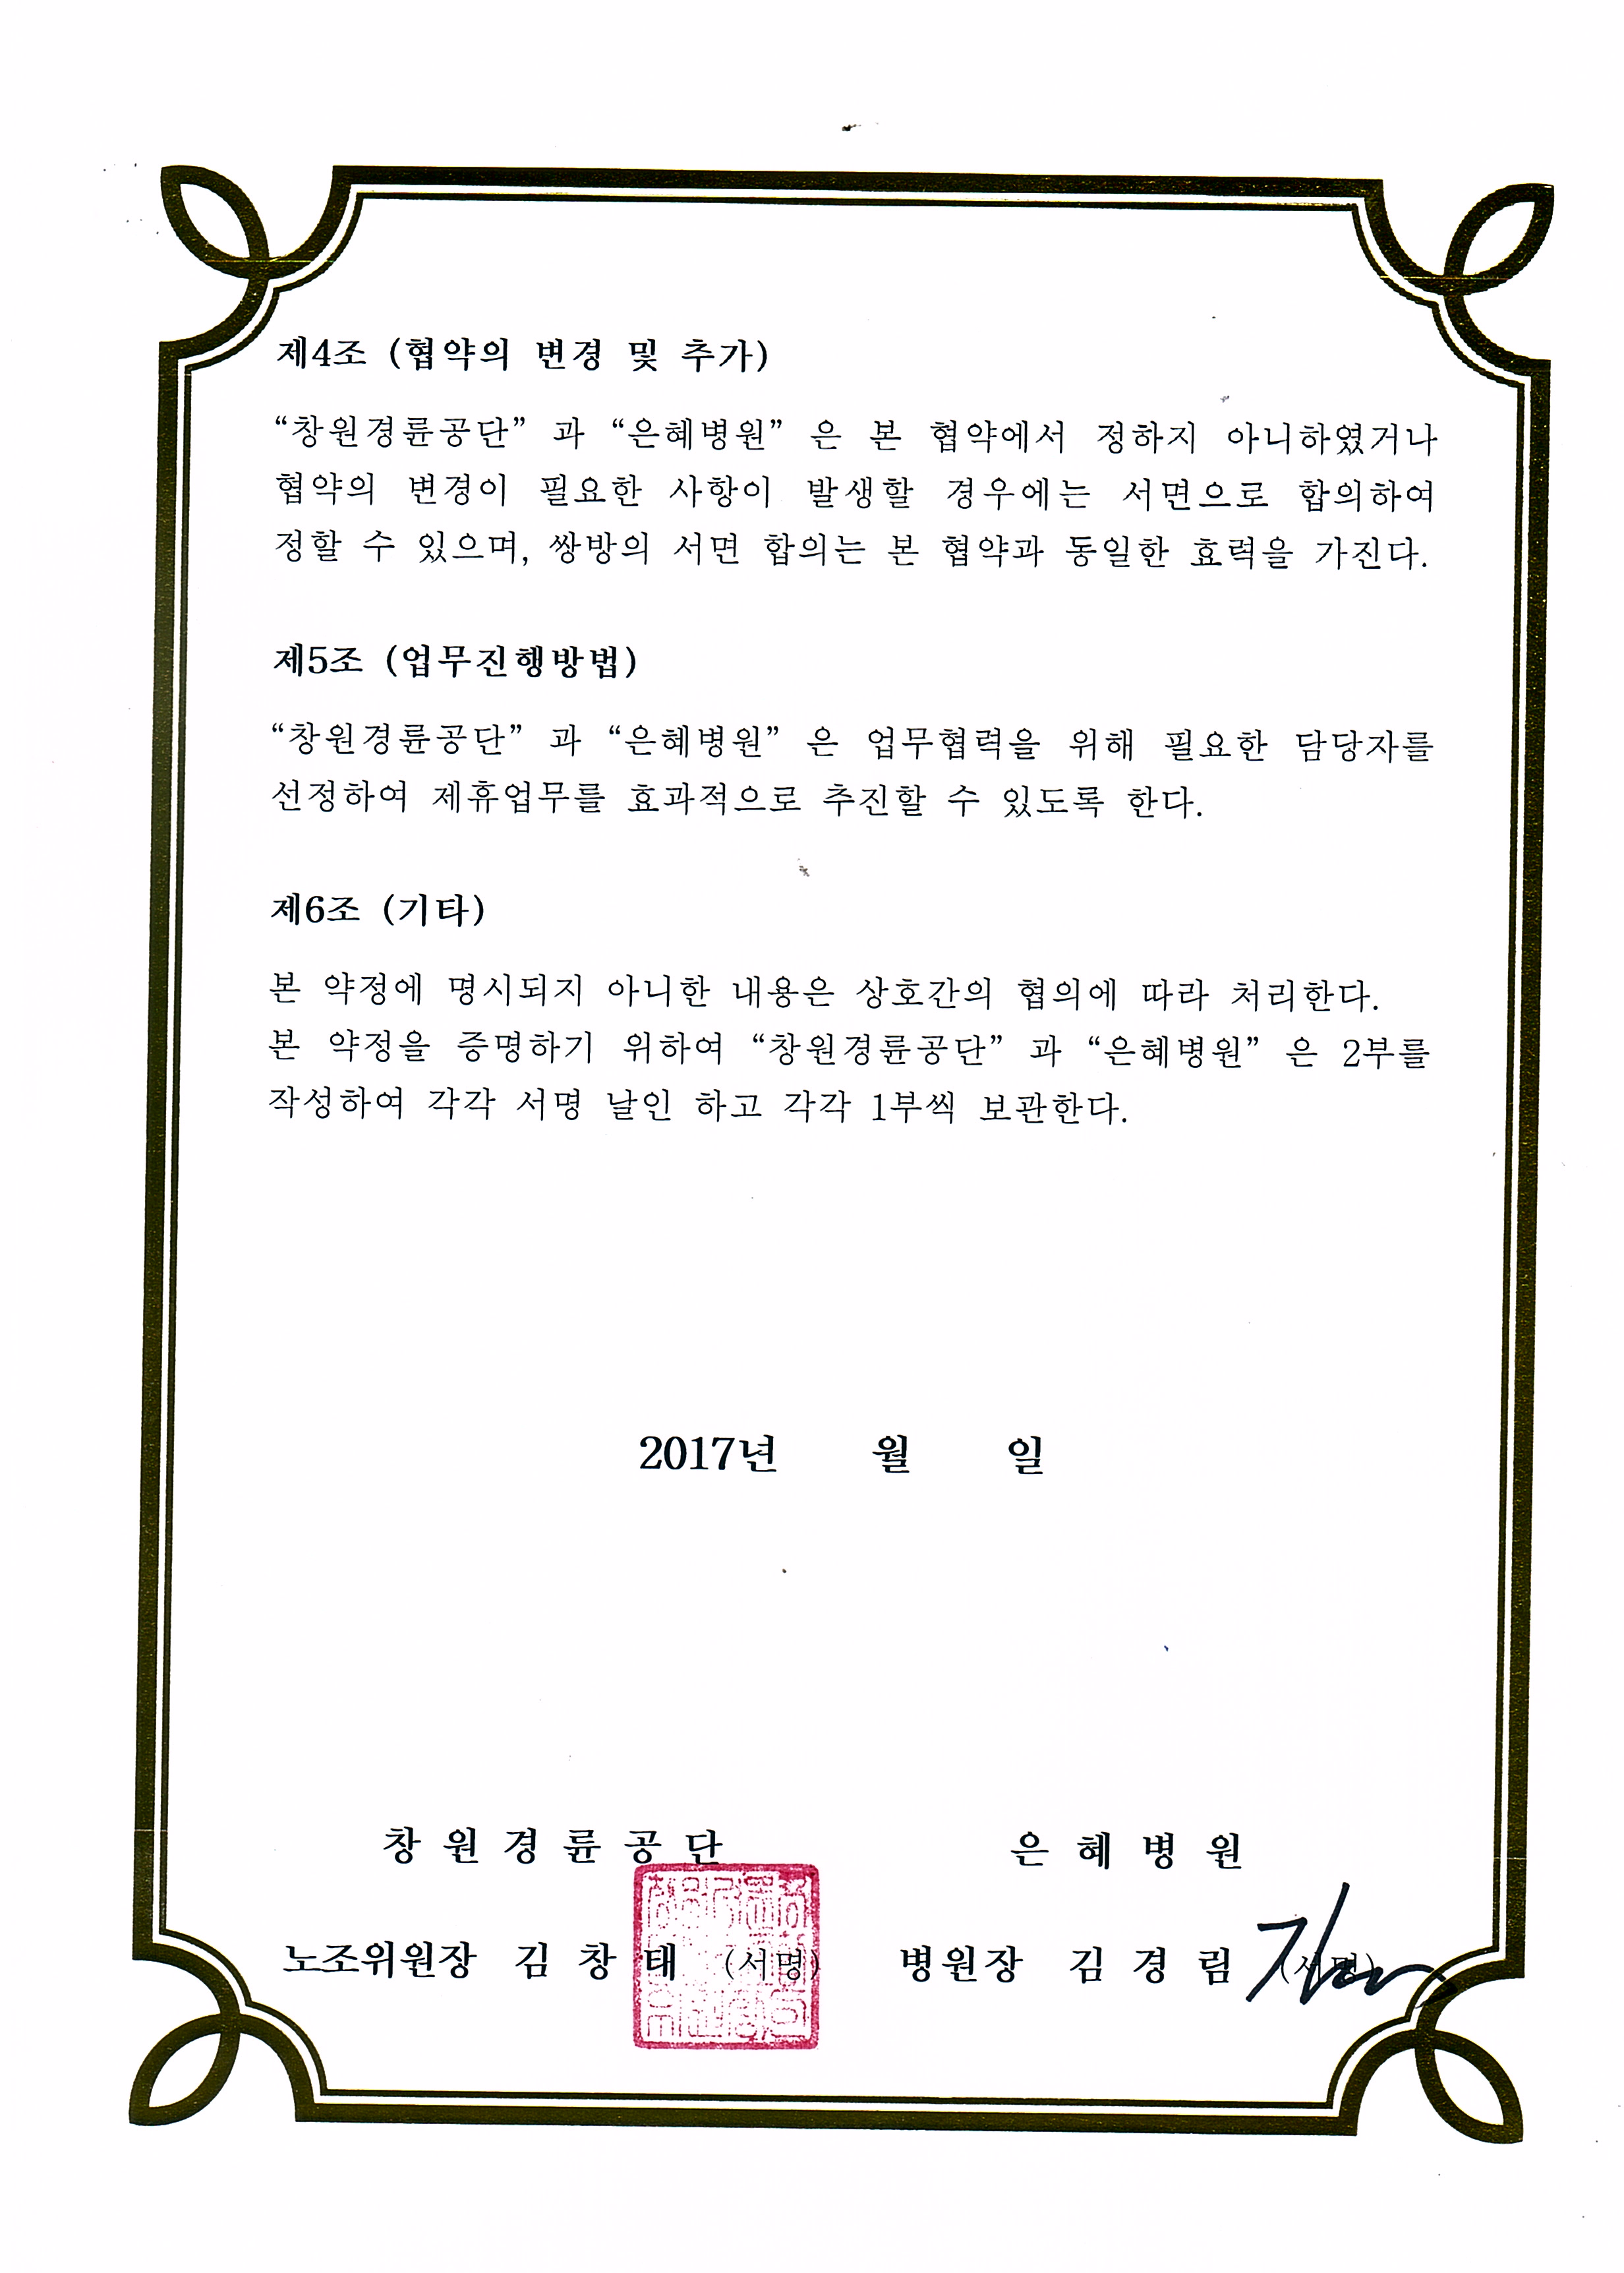 제4조 (협약의 변경 및 추가)
“창원경륜공단” 과 “은혜병원” 은 본 협약에서 정하지 아니하였거나
협약의 변경이 필요한 사항이 발생할 경우에는 서면으로 합의하여
정할 수 있으며, 쌍방의 서면 합의는 본 협약과 동일한 효력을 가진다.
제5조 (업무진행방법)
“창원경륜공단” 과 “은혜병원” 은 업무협력을 위해 필요한 담당자를
선정하여 제휴업무를 효과적으로 추진할 수 있도록 한다.
제6조 (기타)
본 약정에 명시되지 아니한 내용은 상호간의 협의에 따라 처리한다.
본 약정을 증명하기 위하여 “창원경륜공단” 과 “은혜병원” 은 2부를
작성하여 각각 서명 날인 하고 각각 1부씩 보관한다.
2017년 월 일
창 원 경 륜 공 단
노조위원장 김 창 태 (서명)
은 혜 병 원
병원장 김 경 림 (서명)